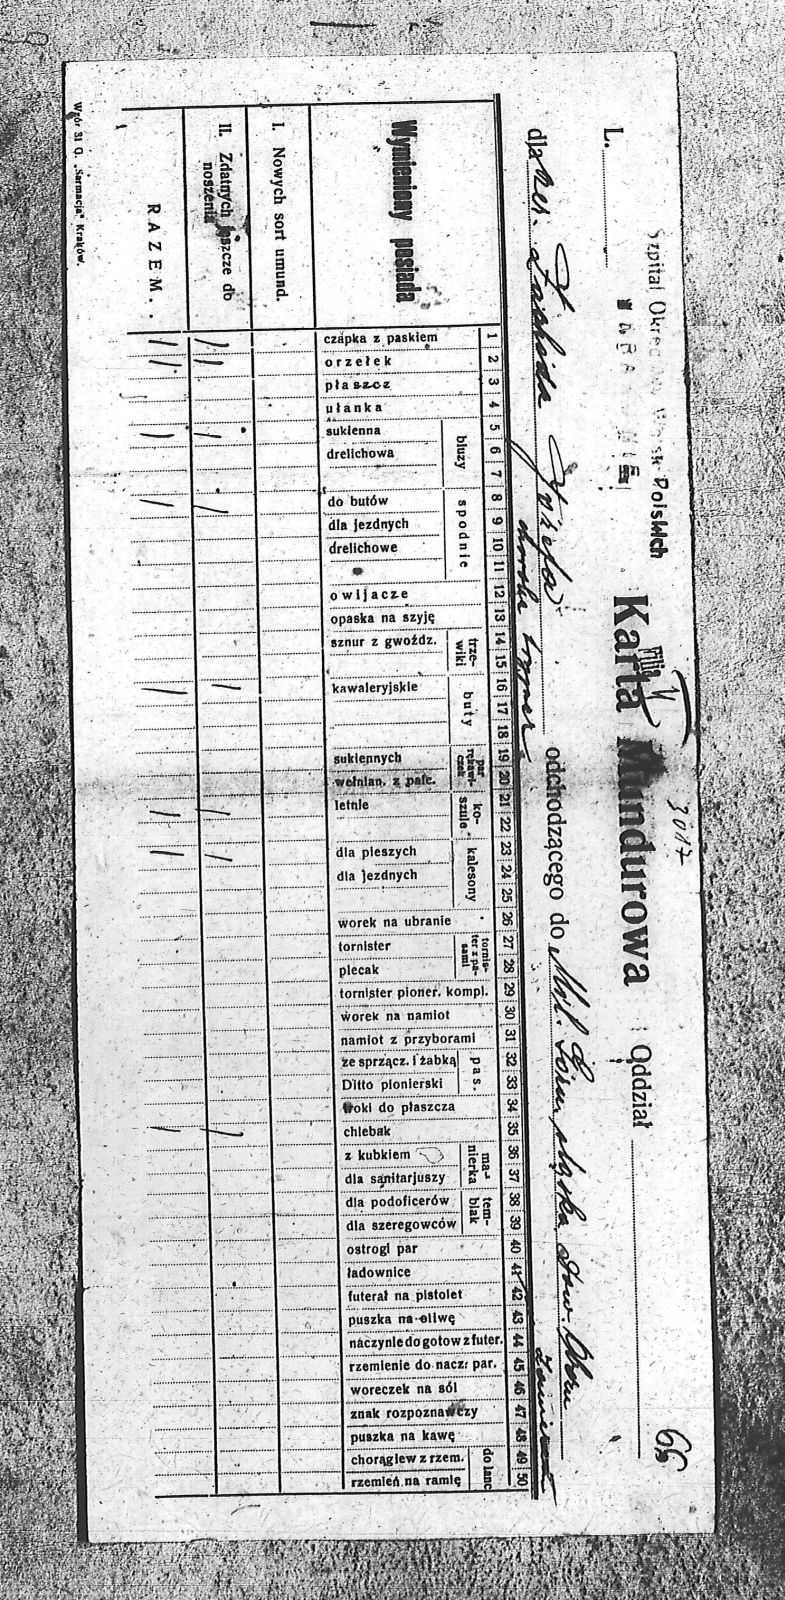 Szpital Okręgowy Wojsk Polskich
L.
Karta Mundurowa
Oddział
3017
66
dla Zachida Józefa odchodzącego do
Wymieniony posiada
I. Nowych sort umund.
II. Zdatnych jeszcze do noszenia
RAZEM.
1 czapka z paskiem / /
2 orzełek / /
3 płaszcz
4 ułanka
bluzy
5 sukienna / /
6 drelichowa
7
spodnie
8 do butów / /
9 dla jezdnych
10 drelichowe
11
12 owijacze
13 opaska na szyję
trze-wiki
14 sznur z gwoźdz.
15
buty
16 kawaleryjskie / /
17
18
par rękawi-czek
19 sukiennych
20 wełnian. z palc.
ko-szule
21 letnie / /
22
kalesony
23 dla pieszych / /
24 dla jezdnych
25
26 worek na ubranie
tornis-ter z pa-sami
27 tornister
28 plecak
29 tornister pioner. kompl.
30 worek na namiot
31 namiot z przyborami
pas.
32 ze sprzącz. i żabką
33 Ditto pionierski
34 troki do płaszcza
35 chlebak / /
ma-nierka
36 z kubkiem
37 dla sanitarjuszy
tem-blak
38 dla podoficerów
39 dla szeregowców
40 ostrogi par
41 ładownice
42 futerał na pistolet
43 puszka na oliwę
44 naczynie do gotow z futer.
45 rzemienie do nacz. par.
46 woreczek na sól
47 znak rozpoznawczy
48 puszka na kawę
do lanc
49 chorągiew z rzem.
50 rzemień na ramię
Wzór 31 O. „Sarmacja" Kraków.